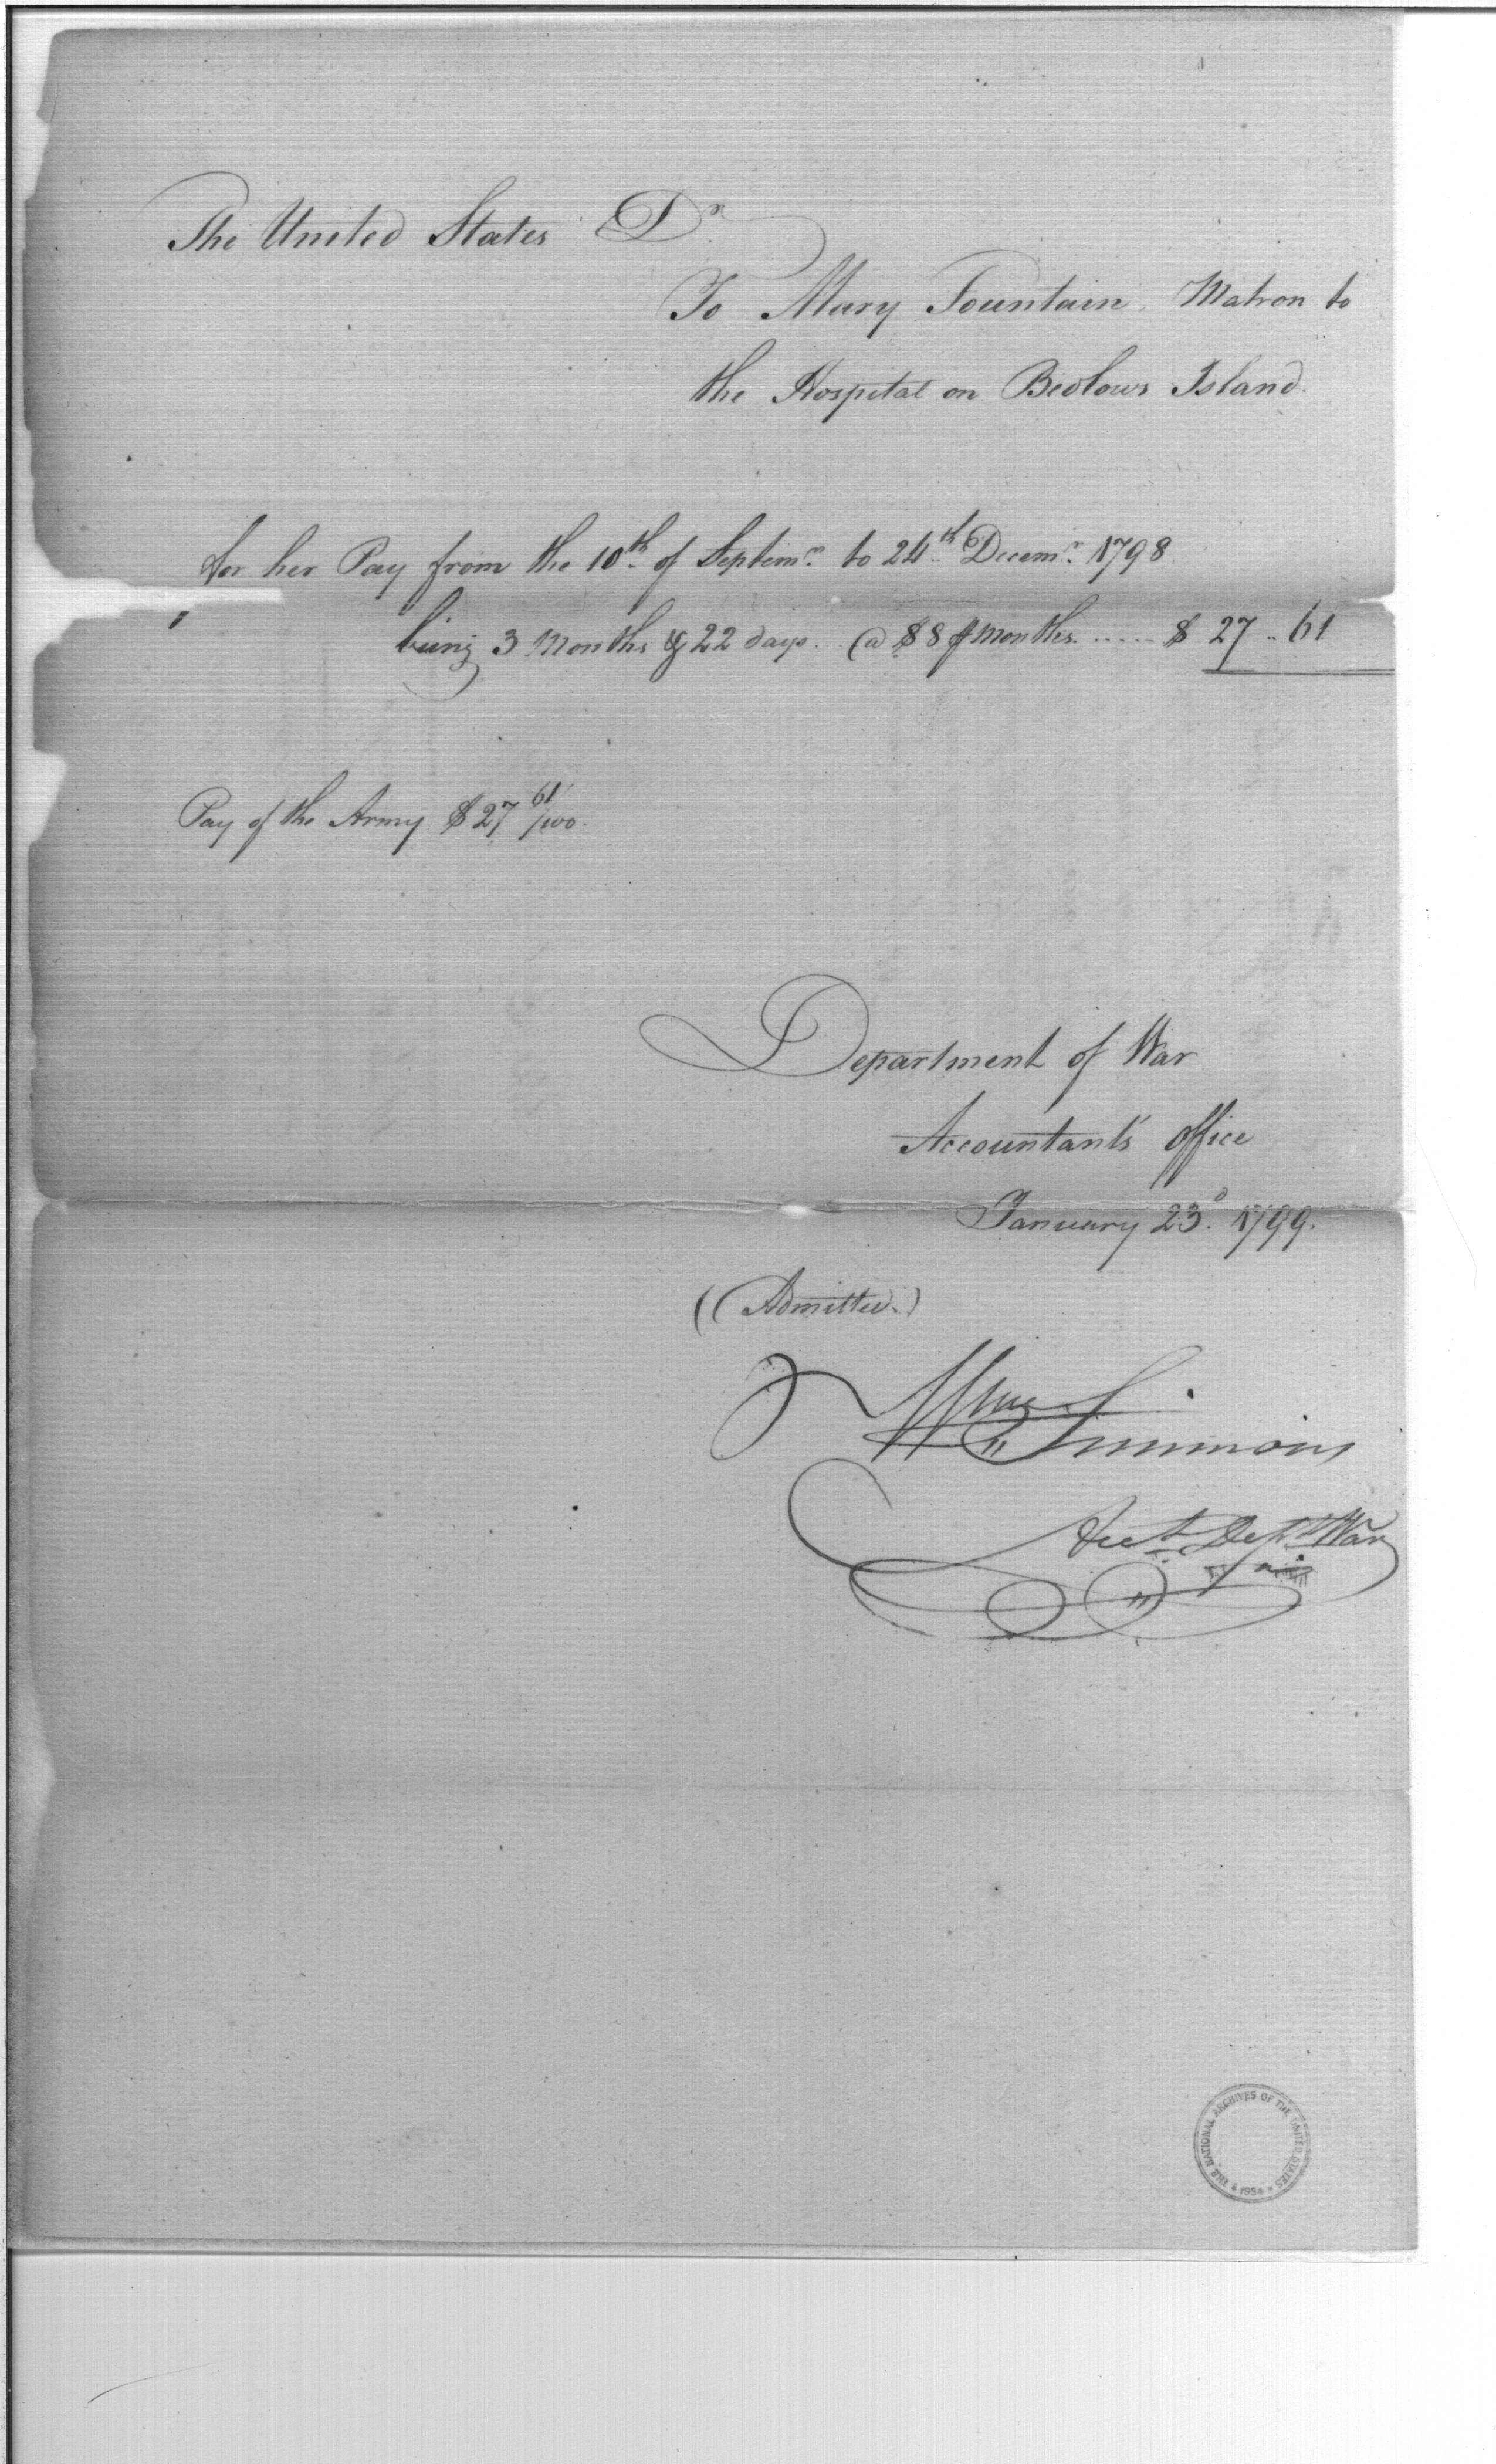 The United States Dr
To Mary Fountain, Matron to
the Hospital on Bedlows Island.
for her Pay from the 10th of Septemr to 24th Decemr 1798
being 3 Months & 22 days. @ $8 ⅌ Months ..... $ 27 .. 61
Pay of the Army $27 61/100.
Department of War
Accountant's office
January 23d. 1799.
(Admitted.)
Wm Simmons
Acct. Dept War
THE NATIONAL ARCHIVES OF THE UNITED STATES
1954